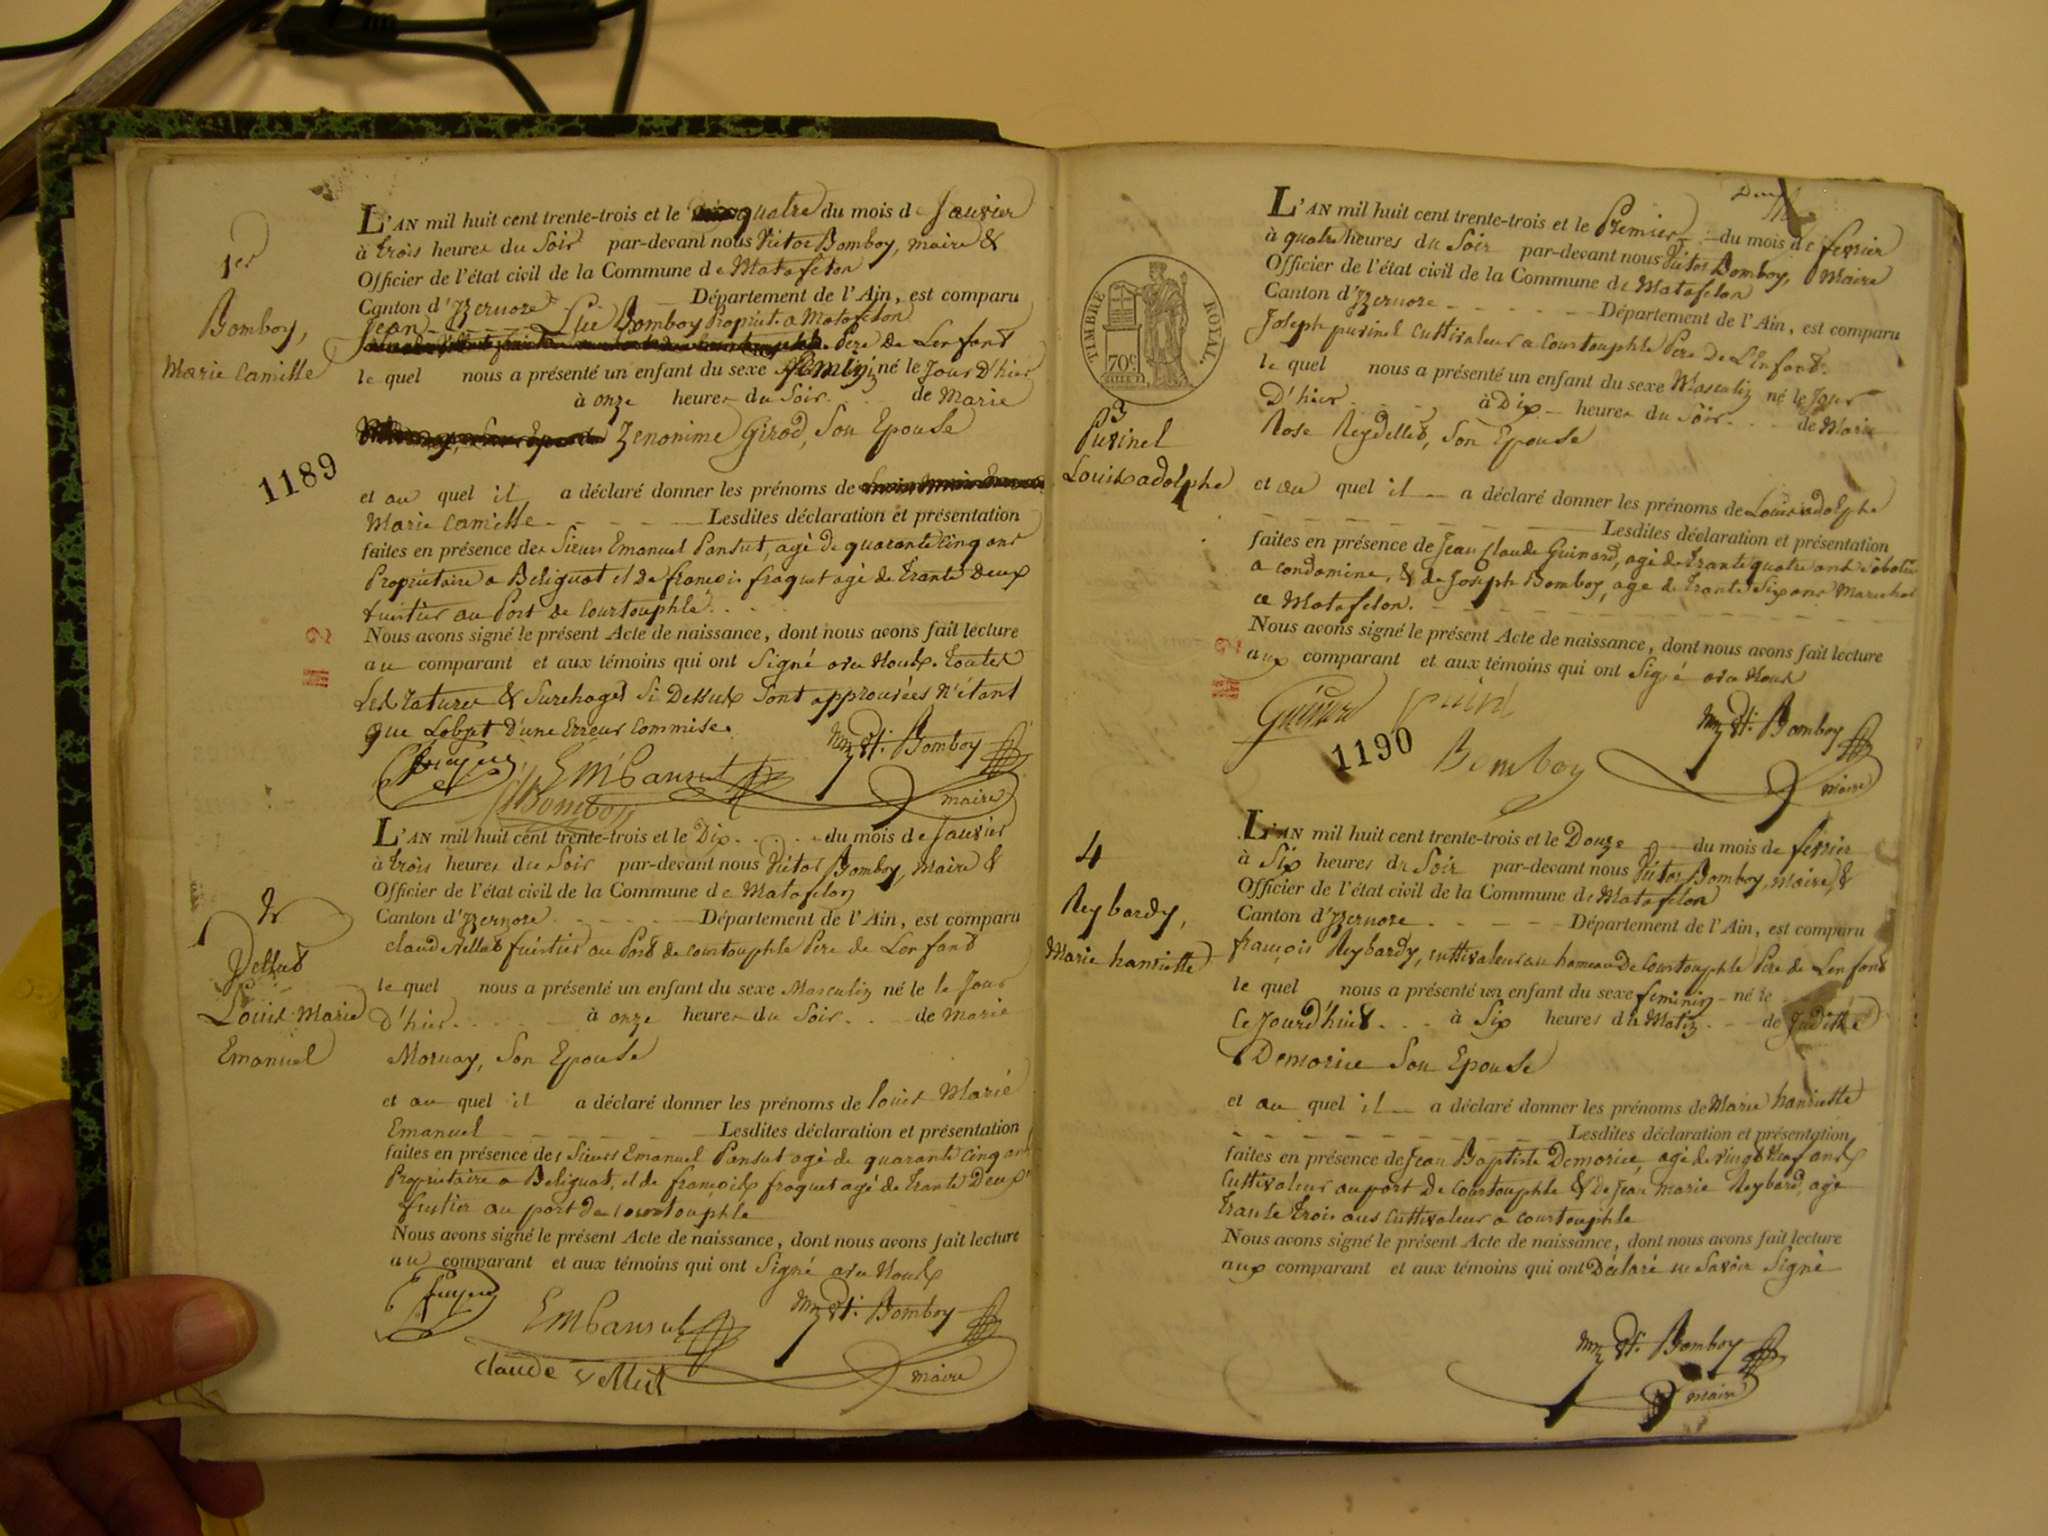 1er
Bomboy,
Marie Camille
1189
L'AN mil huit cent trente-trois et le quatre du mois de Janvier
à trois heures du Soir par-devant nous Victor Bomboy, maire &
Officier de l'état civil de la Commune de Matafelon
Canton d'Izernore Département de l'Ain, est comparu
Jean Bomboy Propriét. a Matafelon
Pere de Lenfant
le quel nous a présenté un enfant du sexe feminin né le Jour d'hier
à onze heures du Soir de Marie
Zenonime Girod, Son Epouse
et au quel il a déclaré donner les prénoms de
Marie Camille Lesdites déclaration et présentation
faites en présence des Sieurs Emanuel Pansut, agé de quarante cinq ans
Propriétaire a Beliguat et de francois fraquet agé de trante deux
fuistier au Port de Courtouphle
Nous avons signé le présent Acte de naissance, dont nous avons fait lecture
au comparant et aux témoins qui ont Signé avec Nous. toutes
Les ratures & Surchages Si Dessus Sont approuvées N'étant
que Lobjet D'une Erreur Commise.
EM Pansut Bomboy
Bomboy maire
2
Vellut
Louis Marie
Emanuel
L'AN mil huit cent trente-trois et le Dix du mois de Janvier
à trois heures du Soir par-devant nous Victor Bomboy, Maire &
Officier de l'état civil de la Commune de Matafelon
Canton d'Izernore Département de l'Ain, est comparu
claude Vellut fuistier au Port de Courtouphle Pere de Lenfant
le quel nous a présenté un enfant du sexe Masculin né le le Jour
D'hier à onze heures du Soir de Marie
Mornay, Son Epouse
et au quel il a déclaré donner les prénoms de louis Marie
Emanuel Lesdites déclaration et présentation
faites en présence des Sieurs Emanuel Pansut agé de quarante cinq ans
Propriétaire a Beliguat, et de francois fraquet agé de trante Deux
fustier au port de Courtouphle
Nous avons signé le présent Acte de naissance, dont nous avons fait lecture
au comparant et aux témoins qui ont Signé avec Nous
EM Pansut Bomboy
claude Vellut maire
TIMBRE ROYAL
70c
3
Puvinel
Louis adolphe
L'AN mil huit cent trente-trois et le Premier du mois de fevrier
à quatre heures du Soir par-devant nous Victor Bomboy, Maire
Officier de l'état civil de la Commune de Matafelon
Canton d'Izernore Département de l'Ain, est comparu
Joseph puvinel Cultivateur a Courtouphle Pere de L'Enfant.
le quel nous a présenté un enfant du sexe Masculin né le Jour
D'hier à Dix heures du Soir de Marie
Rose Reydellet, Son Epouse
et au quel il a déclaré donner les prénoms de Louis adolphe
Lesdites déclaration et présentation
faites en présence de Jean Claude Guinard, agé de trante quatre ans Sabotier
a Condamine, & de Joseph Bomboy, agé de trante Six ans Marechal
a Matafelon.
Nous avons signé le présent Acte de naissance, dont nous avons fait lecture
aux comparant et aux témoins qui ont Signé avec Nous
Guinard Bomboy
1190 Bomboy maire
4
Reybardy,
Marie hanriette
L'AN mil huit cent trente-trois et le Douze du mois de fevrier
à Six heures du Soir par-devant nous Victor Bomboy, Maire, &
Officier de l'état civil de la Commune de Matafelon
Canton d'Izernore Département de l'Ain, est comparu
françois Reybardy, cultivateur au hameau De Courtouphle Pere de Lenfant
le quel nous a présenté un enfant du sexe feminin né le
Ce Jourd'huit à Six heures du Matin de Judithe
Demorice Son Epouse
et au quel il a déclaré donner les prénoms de Marie hanriette
Lesdites déclaration et présentation
faites en présence de Jean Baptiste Demorice, agé de Vingt Neuf ans
Cultivateur au port De Courtouphle & De Jean Marie Reybard, agé
trante trois ans Cultivateur a Courtouphle
Nous avons signé le présent Acte de naissance, dont nous avons fait lecture
aux comparant et aux témoins qui ont Déclaré ne Savoir Signé
Bomboy
maire